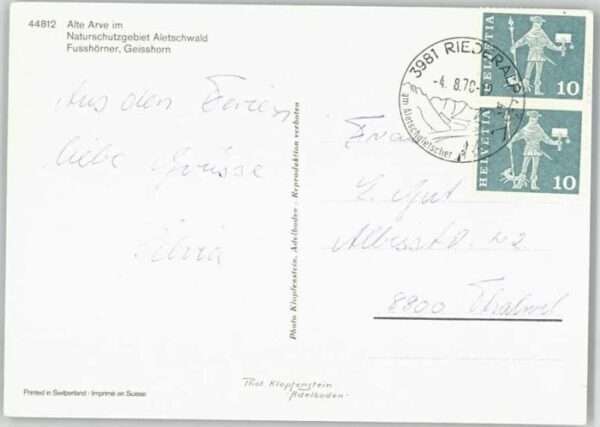 44812 Alte Arve im
Naturschutzgebiet Aletschwald
Fusshörner, Geisshorn
Aus den Ferien
liebe Grüsse
Silvia
Photo Klopfenstein, Adelboden - Reproduktion verboten
3981 RIEDERALP
-4. 8.70
am Aletschgletscher
HELVETIA
10
HELVETIA
10
Frau
L. Gut
8800 Thalwil
Printed in Switzerland - Imprimé en Suisse
Phot. Klopfenstein
Adelboden